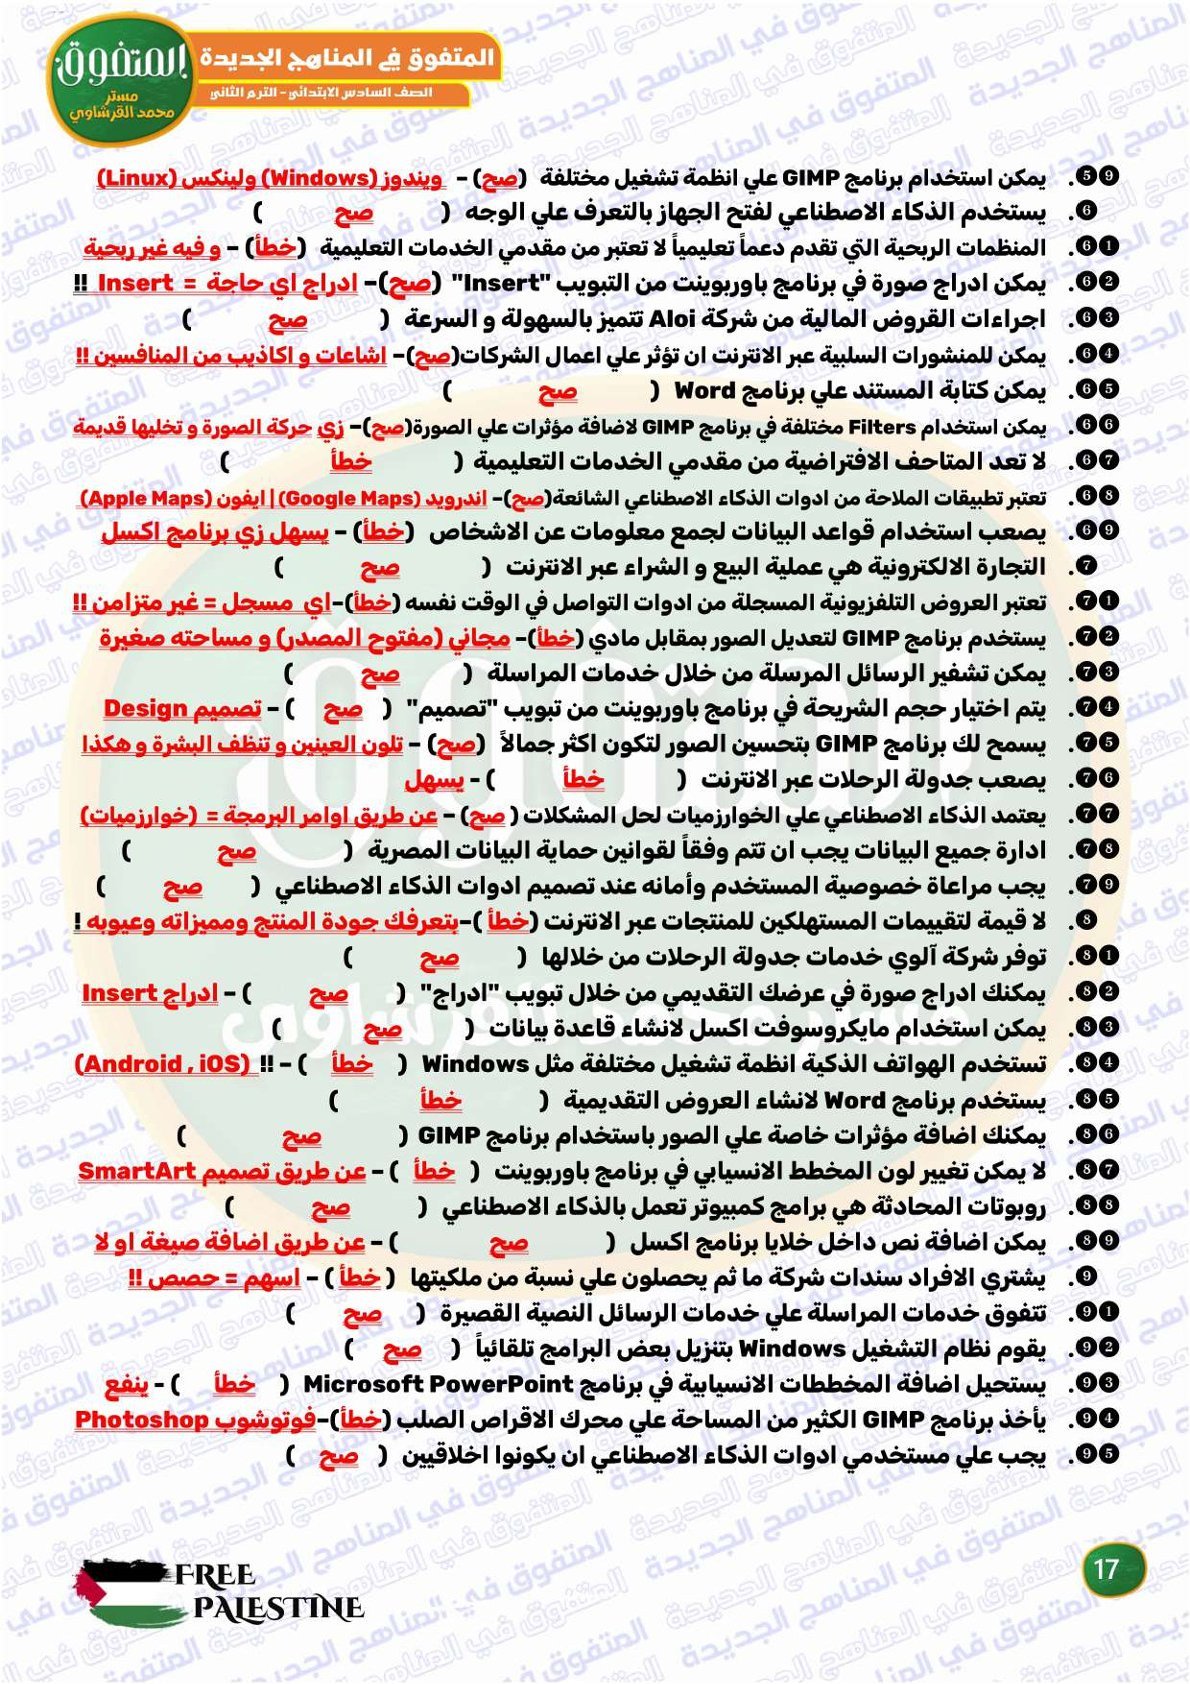 المتفوق
مستر
محمد القرشاوي
المتفوق في المناهج الجديدة
الصف السادس الابتدائي - الترم الثاني
59. يمكن استخدام برنامج GIMP علي انظمة تشغيل مختلفة (صح) - ويندوز (Windows) ولينكس (Linux)
6. يستخدم الذكاء الاصطناعي لفتح الجهاز بالتعرف علي الوجه ( صح )
61. المنظمات الربحية التي تقدم دعماً تعليمياً لا تعتبر من مقدمي الخدمات التعليمية (خطأ) - و فيه غير ربحية
62. يمكن ادراج صورة في برنامج باوربوينت من التبويب "Insert" (صح)- ادراج اي حاجة = Insert !!
63. اجراءات القروض المالية من شركة Aloi تتميز بالسهولة و السرعة ( صح )
64. يمكن للمنشورات السلبية عبر الانترنت ان تؤثر علي اعمال الشركات(صح)- اشاعات و اكاذيب من المنافسين !!
65. يمكن كتابة المستند علي برنامج Word ( صح )
66. يمكن استخدام Filters مختلفة في برنامج GIMP لاضافة مؤثرات علي الصورة(صح)- زي حركة الصورة و تخليها قديمة
67. لا تعد المتاحف الافتراضية من مقدمي الخدمات التعليمية ( خطأ )
68. تعتبر تطبيقات الملاحة من ادوات الذكاء الاصطناعي الشائعة(صح)- اندرويد (Google Maps) | ايفون (Apple Maps)
69. يصعب استخدام قواعد البيانات لجمع معلومات عن الاشخاص (خطأ) - يسهل زي برنامج اكسل
7. التجارة الالكترونية هي عملية البيع و الشراء عبر الانترنت ( صح )
71. تعتبر العروض التلفزيونية المسجلة من ادوات التواصل في الوقت نفسه (خطأ)-اي مسجل = غير متزامن !!
72. يستخدم برنامج GIMP لتعديل الصور بمقابل مادي (خطأ)- مجاني (مفتوح المصدر) و مساحته صغيرة
73. يمكن تشفير الرسائل المرسلة من خلال خدمات المراسلة ( صح )
74. يتم اختيار حجم الشريحة في برنامج باوربوينت من تبويب "تصميم" ( صح ) - تصميم Design
75. يسمح لك برنامج GIMP بتحسين الصور لتكون اكثر جمالاً (صح) - تلون العينين و تنظف البشرة و هكذا
76. يصعب جدولة الرحلات عبر الانترنت ( خطأ ) - يسهل
77. يعتمد الذكاء الاصطناعي علي الخوارزميات لحل المشكلات ( صح) - عن طريق اوامر البرمجة = (خوارزميات)
78. ادارة جميع البيانات يجب ان تتم وفقاً لقوانين حماية البيانات المصرية ( صح )
79. يجب مراعاة خصوصية المستخدم وأمانه عند تصميم ادوات الذكاء الاصطناعي ( صح )
8. لا قيمة لتقييمات المستهلكين للمنتجات عبر الانترنت (خطأ )-بتعرفك جودة المنتج ومميزاته وعيوبه !
81. توفر شركة آلوي خدمات جدولة الرحلات من خلالها ( صح )
82. يمكنك ادراج صورة في عرضك التقديمي من خلال تبويب "ادراج" ( صح ) - ادراج Insert
83. يمكن استخدام مايكروسوفت اكسل لانشاء قاعدة بيانات ( صح )
84. تستخدم الهواتف الذكية انظمة تشغيل مختلفة مثل Windows ( خطأ ) - !! (Android , iOS)
85. يستخدم برنامج Word لانشاء العروض التقديمية ( خطأ )
86. يمكنك اضافة مؤثرات خاصة علي الصور باستخدام برنامج GIMP ( صح )
87. لا يمكن تغيير لون المخطط الانسيابي في برنامج باوربوينت ( خطأ ) - عن طريق تصميم SmartArt
88. روبوتات المحادثة هي برامج كمبيوتر تعمل بالذكاء الاصطناعي ( صح )
89. يمكن اضافة نص داخل خلايا برنامج اكسل ( صح ) - عن طريق اضافة صيغة او لا
9. يشتري الافراد سندات شركة ما ثم يحصلون علي نسبة من ملكيتها ( خطأ ) - اسهم = حصص !!
91. تتفوق خدمات المراسلة علي خدمات الرسائل النصية القصيرة ( صح )
92. يقوم نظام التشغيل Windows بتنزيل بعض البرامج تلقائياً ( صح )
93. يستحيل اضافة المخططات الانسيابية في برنامج Microsoft PowerPoint ( خطأ ) - ينفع
94. يأخذ برنامج GIMP الكثير من المساحة علي محرك الاقراص الصلب (خطأ)-فوتوشوب Photoshop
95. يجب علي مستخدمي ادوات الذكاء الاصطناعي ان يكونوا اخلاقيين ( صح )
FREE
PALESTINE
17